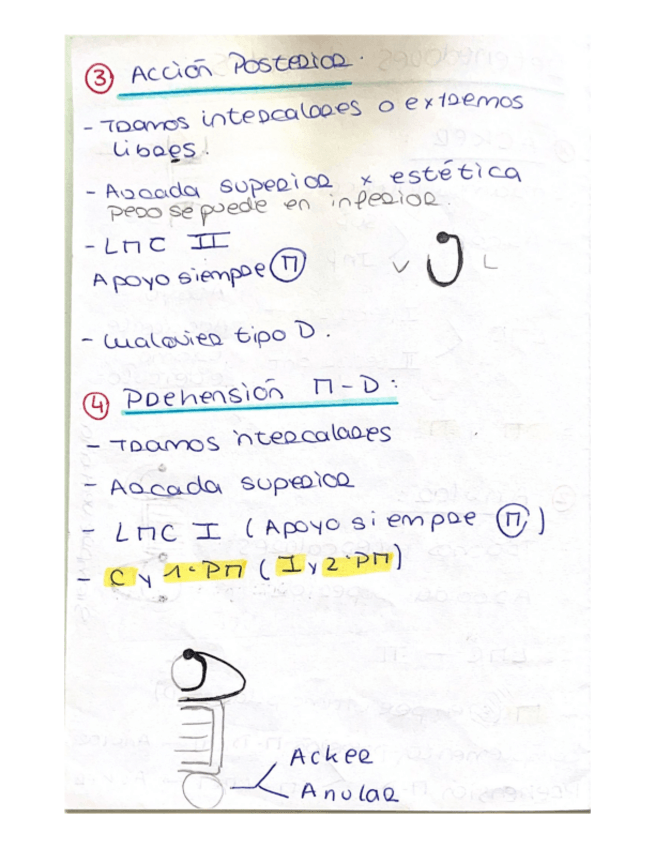 ③ Acción Posterior.
- Tramos intercalares o extremos
libres.
- Arcada superior x estética
pero se puede en inferior.
- LMC II
V L
Apoyo siempre Ⓜ
- Cualquier tipo D.
④ Prehensión M-D:
- Tramos intercalares
- Arcada superior
- LMC I (Apoyo siempre Ⓜ)
- C y 1º PM (I y 2º PM)
Acker
Anular